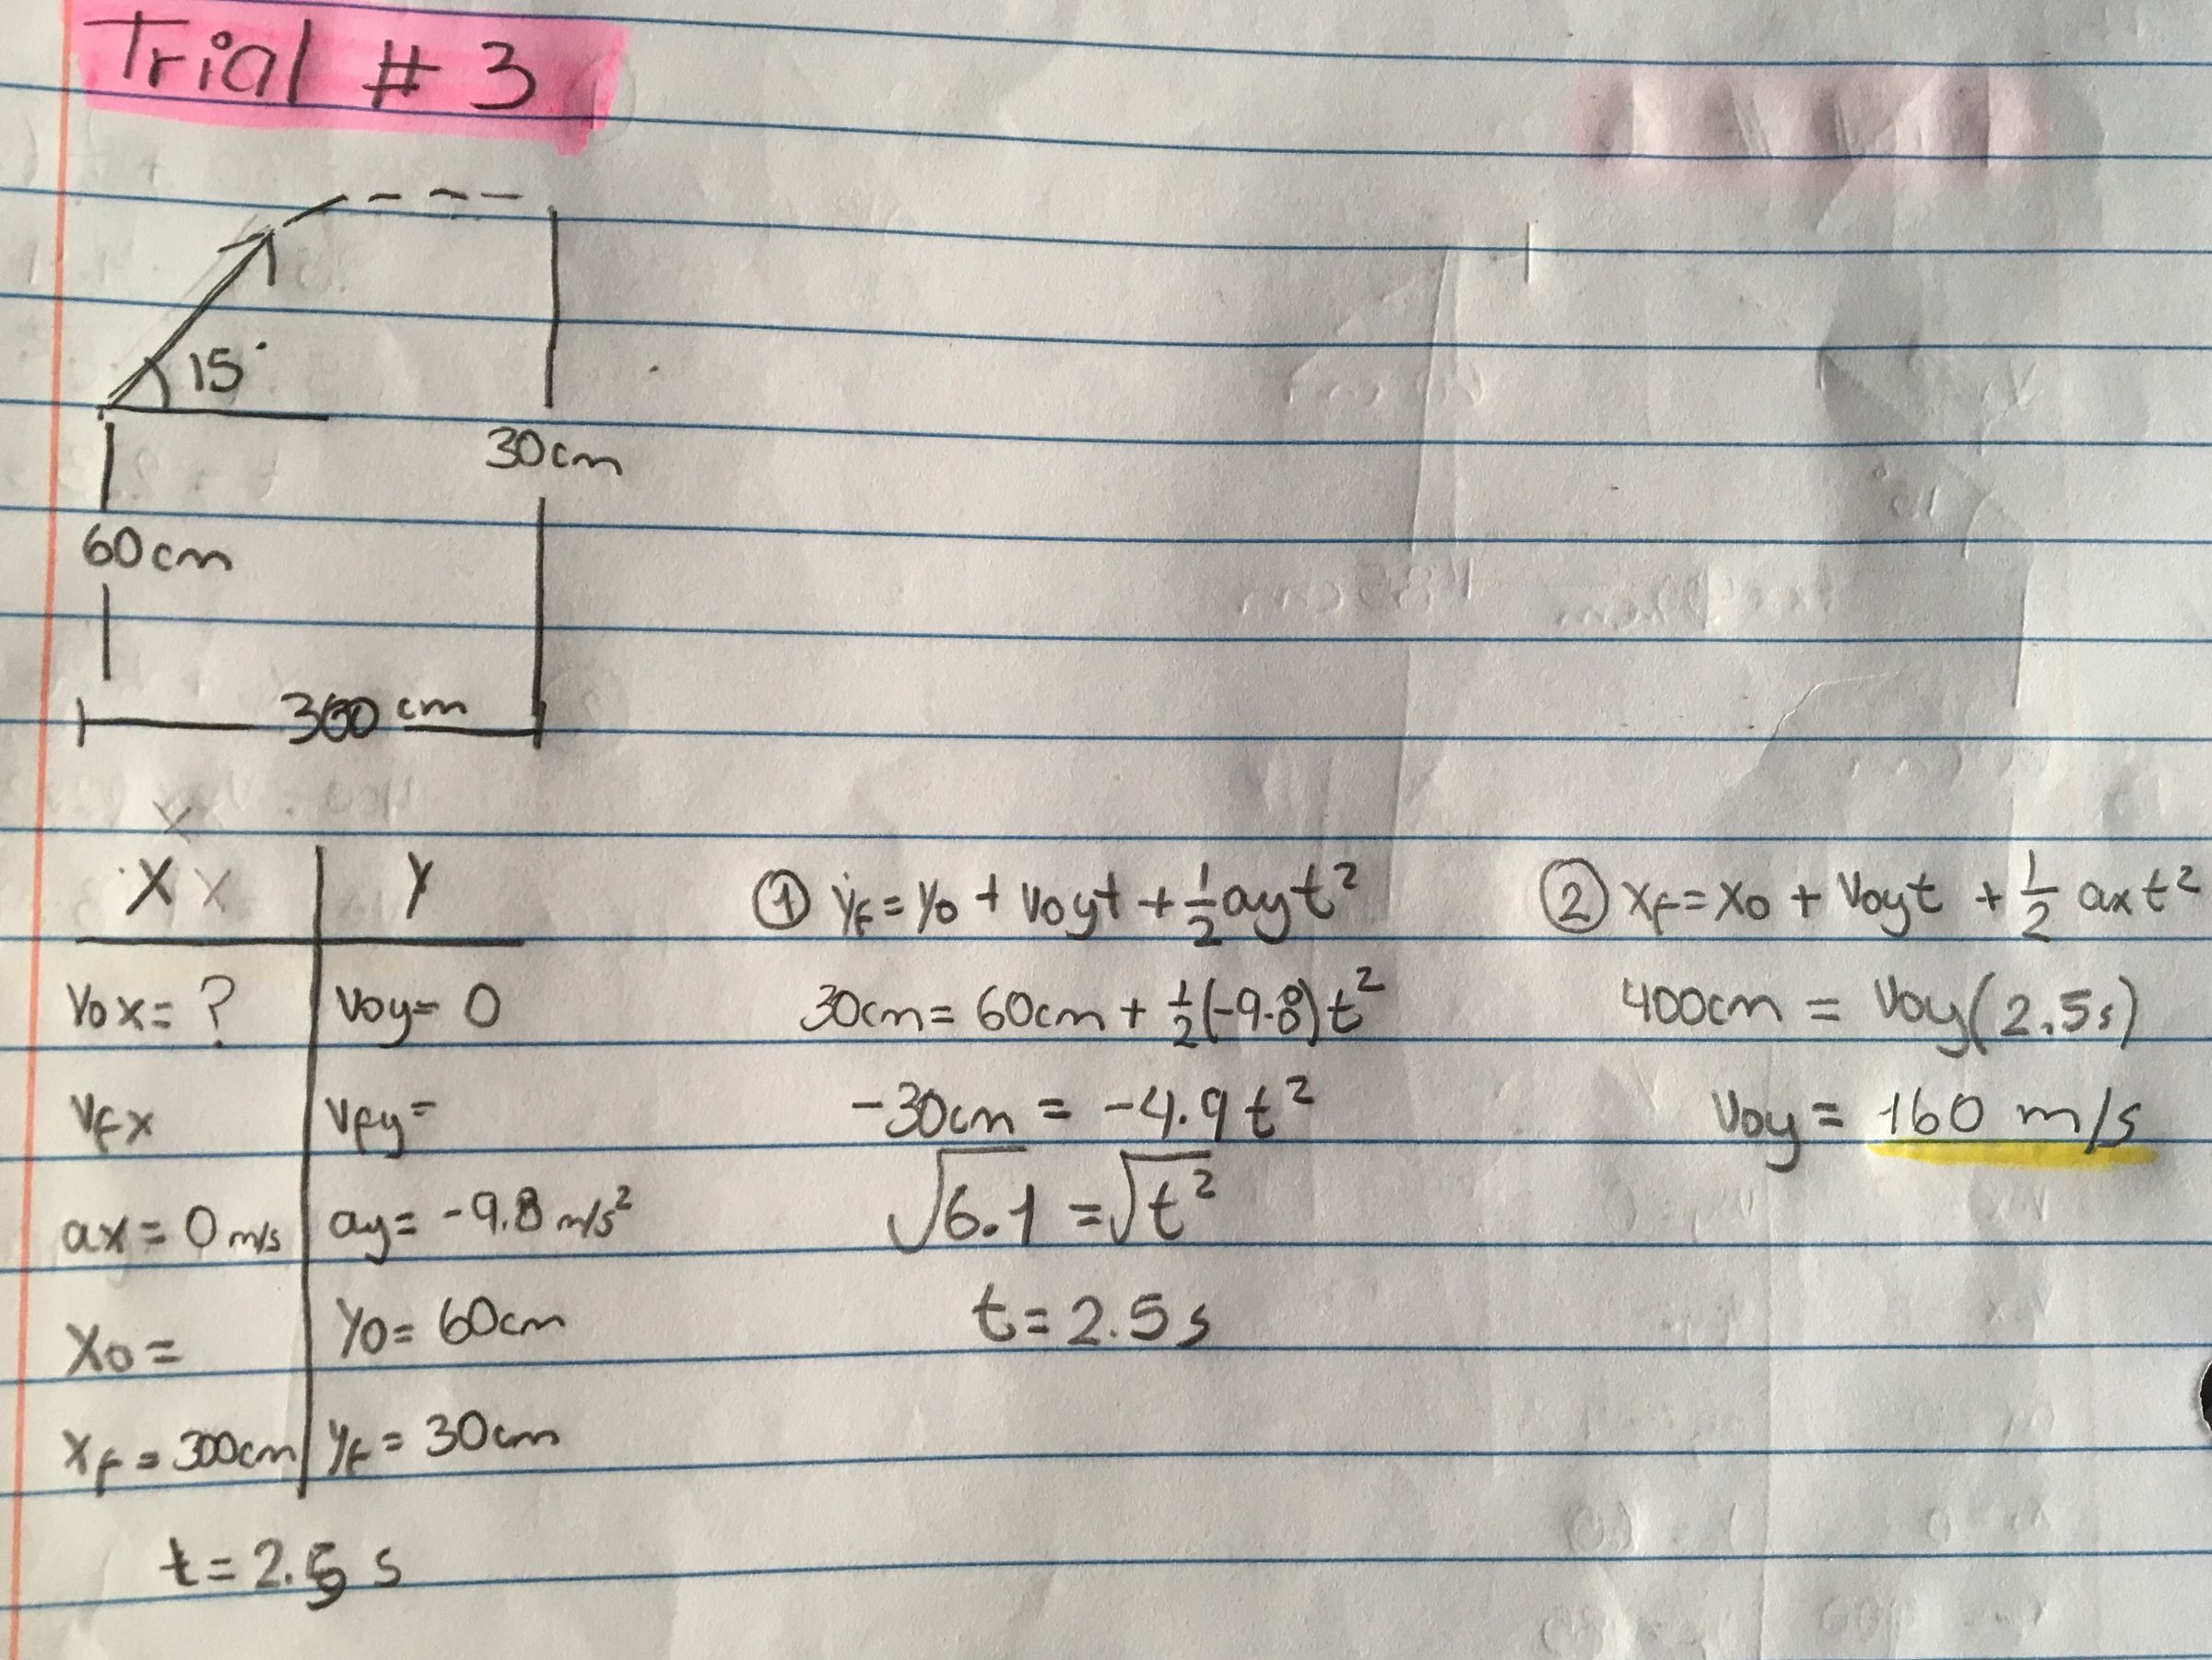 Trial # 3
15°
30cm
60cm
300 cm
X X | Y
Vox = ? | Voy = 0
Vfx | Vfy =
ax = 0 m/s | ay = -9.8 m/s²
Xo = | Yo = 60cm
Xf = 300cm | Yf = 30cm
t = 2.5 s
① Yf = Yo + Voyt + ½ayt²
30cm = 60cm + ½(-9.8)t²
-30cm = -4.9t²
√6.1 = √t²
t = 2.5 s
② Xf = Xo + Voyt + ½ axt²
400cm = Voy(2.5s)
Voy = 160 m/s